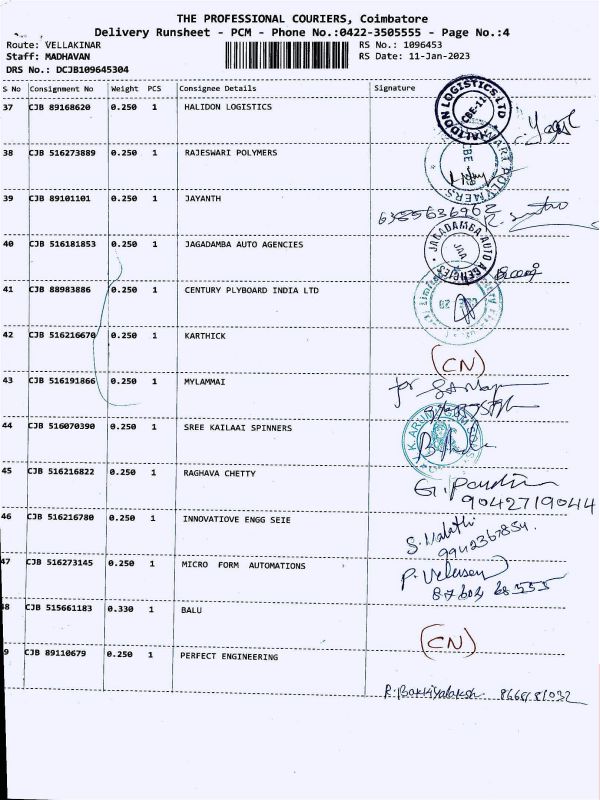 THE PROFESSIONAL COURIERS, Coimbatore
Delivery Runsheet - PCM - Phone No.:0422-3505555 - Page No.:4
Route: VELLAKINAR RS No.: 1096453
Staff: MADHAVAN RS Date: 11-Jan-2023
DRS No.: DCJB109645304
S No Consignment No Weight PCS Consignee Details Signature
37 CJB 89168620 0.250 1 HALIDON LOGISTICS
HALIDON LOGISTICS LTD
CBE-11
38 CJB 516273889 0.250 1 RAJESWARI POLYMERS
39 CJB 89101101 0.250 1 JAYANTH
40 CJB 516181853 0.250 1 JAGADAMBA AUTO AGENCIES
JAGADAMBA AUTO AGENCIES
JAA
41 CJB 88983886 0.250 1 CENTURY PLYBOARD INDIA LTD
42 CJB 516216670 0.250 1 KARTHICK
(CN)
43 CJB 516191866 0.250 1 MYLAMMAI
for
44 CJB 516070390 0.250 1 SREE KAILAAI SPINNERS
45 CJB 516216822 0.250 1 RAGHAVA CHETTY
9042719044
46 CJB 516216780 0.250 1 INNOVATIOVE ENGG SEIE
S. Malathi
9942367854.
47 CJB 516273145 0.250 1 MICRO FORM AUTOMATIONS
48 CJB 515661183 0.330 1 BALU
(CN)
9 CJB 89110679 0.250 1 PERFECT ENGINEERING